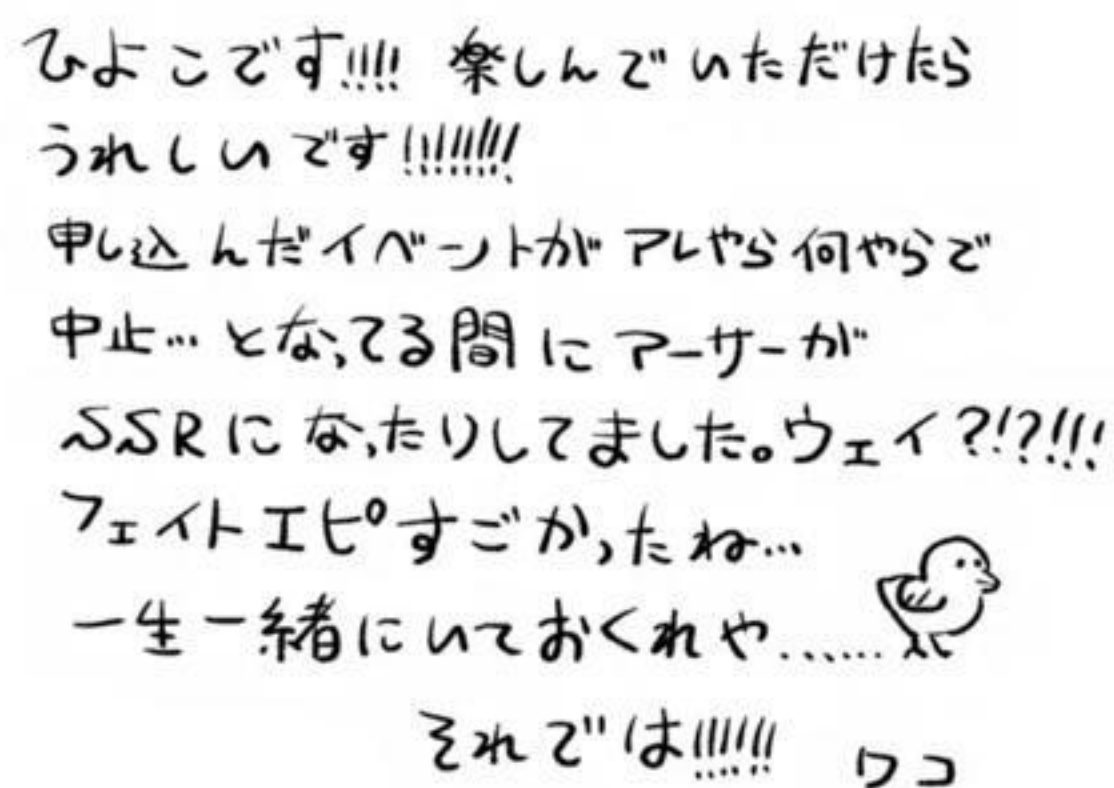 ひよこです!!!! 楽しんでいただけたら
うれしいです!!!!!!!!
申し込んだイベントがアレやら何やらで
中止…となってる間にアーサーが
SSRになったりしてました。ウェイ?!?!!!
フェイトエピすごかったね…
一生一緒にいておくれや……
それでは!!!!!!
ワコ